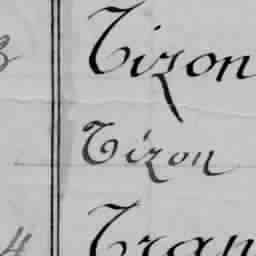 Tizon
Tizon
4 Tran